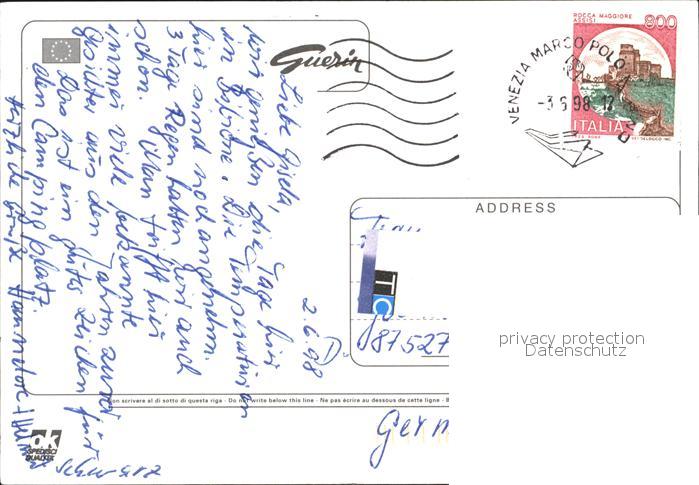 2.6.98
Liebe Gisela,
wir genießen die Tage hier
in Bibione. Die Temperaturen
hier sind noch angenehm.
3 Tage Regen hatten wir auch
schon. Man trifft hier
immer viele bekannte
Gesichter aus den Jahren zuvor
Das ist ein gutes Zeichen für
den Campingplatz.
Herzliche Grüße Hannelore + Helmut
Guerin
ROCCA MAGGIORE
ASSISI
800
ITALIA
VENEZIA MARCO POLO
-3.6.98 12
ADDRESS
Frau
TC
D 87527
Germ
privacy protection
Datenschutz
on scrivere al di sotto di questa riga - Do not write below this line - Ne pas écrire au dessous de cette ligne - B
ok
SPEDISCI
QUALITÀ